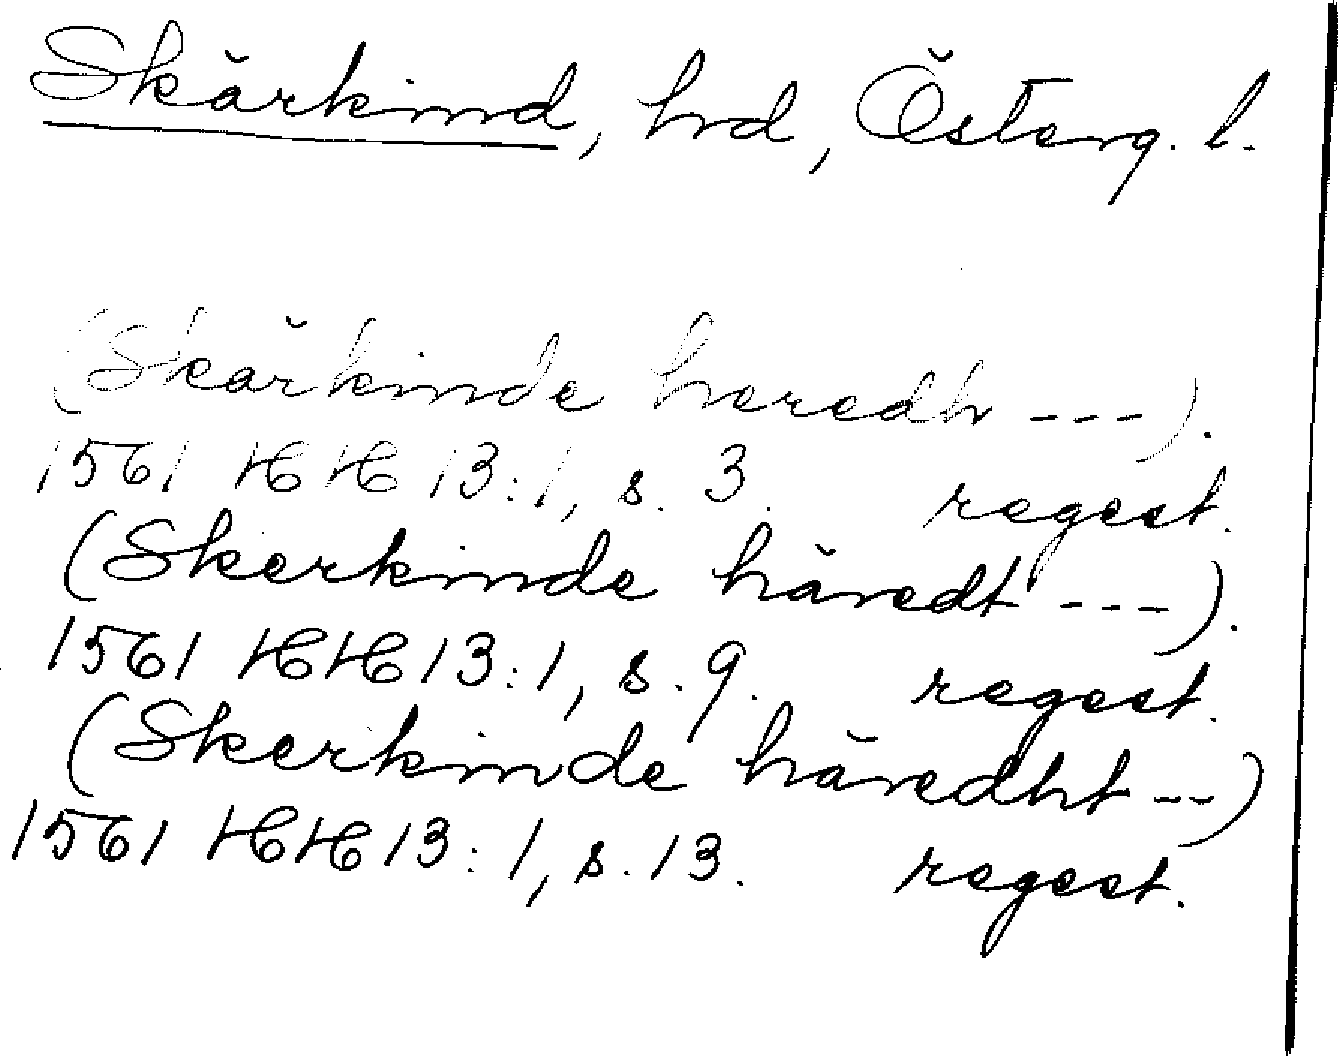 Skärkind, hrd, Österg. l.
(Skärkinde heredh ---).
1561 HH 13:1, s. 3. regest.
(Skerkinde häredt ---).
1561 HH 13:1, s. 9. regest.
(Skerkinde häredht --)
1561 HH 13:1, s. 13. regest.